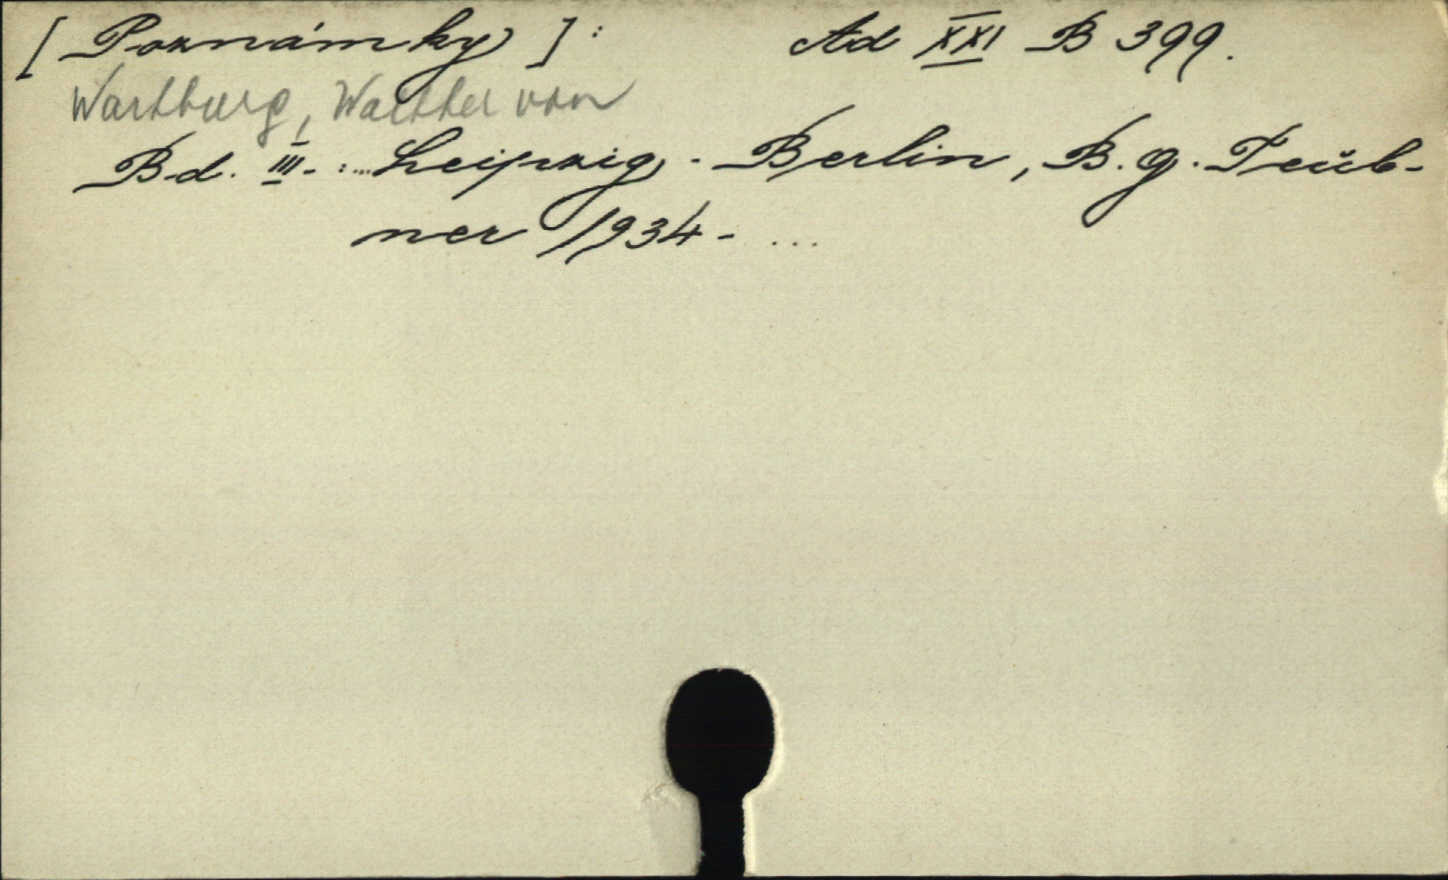 [ Poznámky ] : Ad XXI B 399.
Wartburg, Walther von
Bd. III. - : ... Leipzig - Berlin, B. G. Teub-
ner 1934 - ...